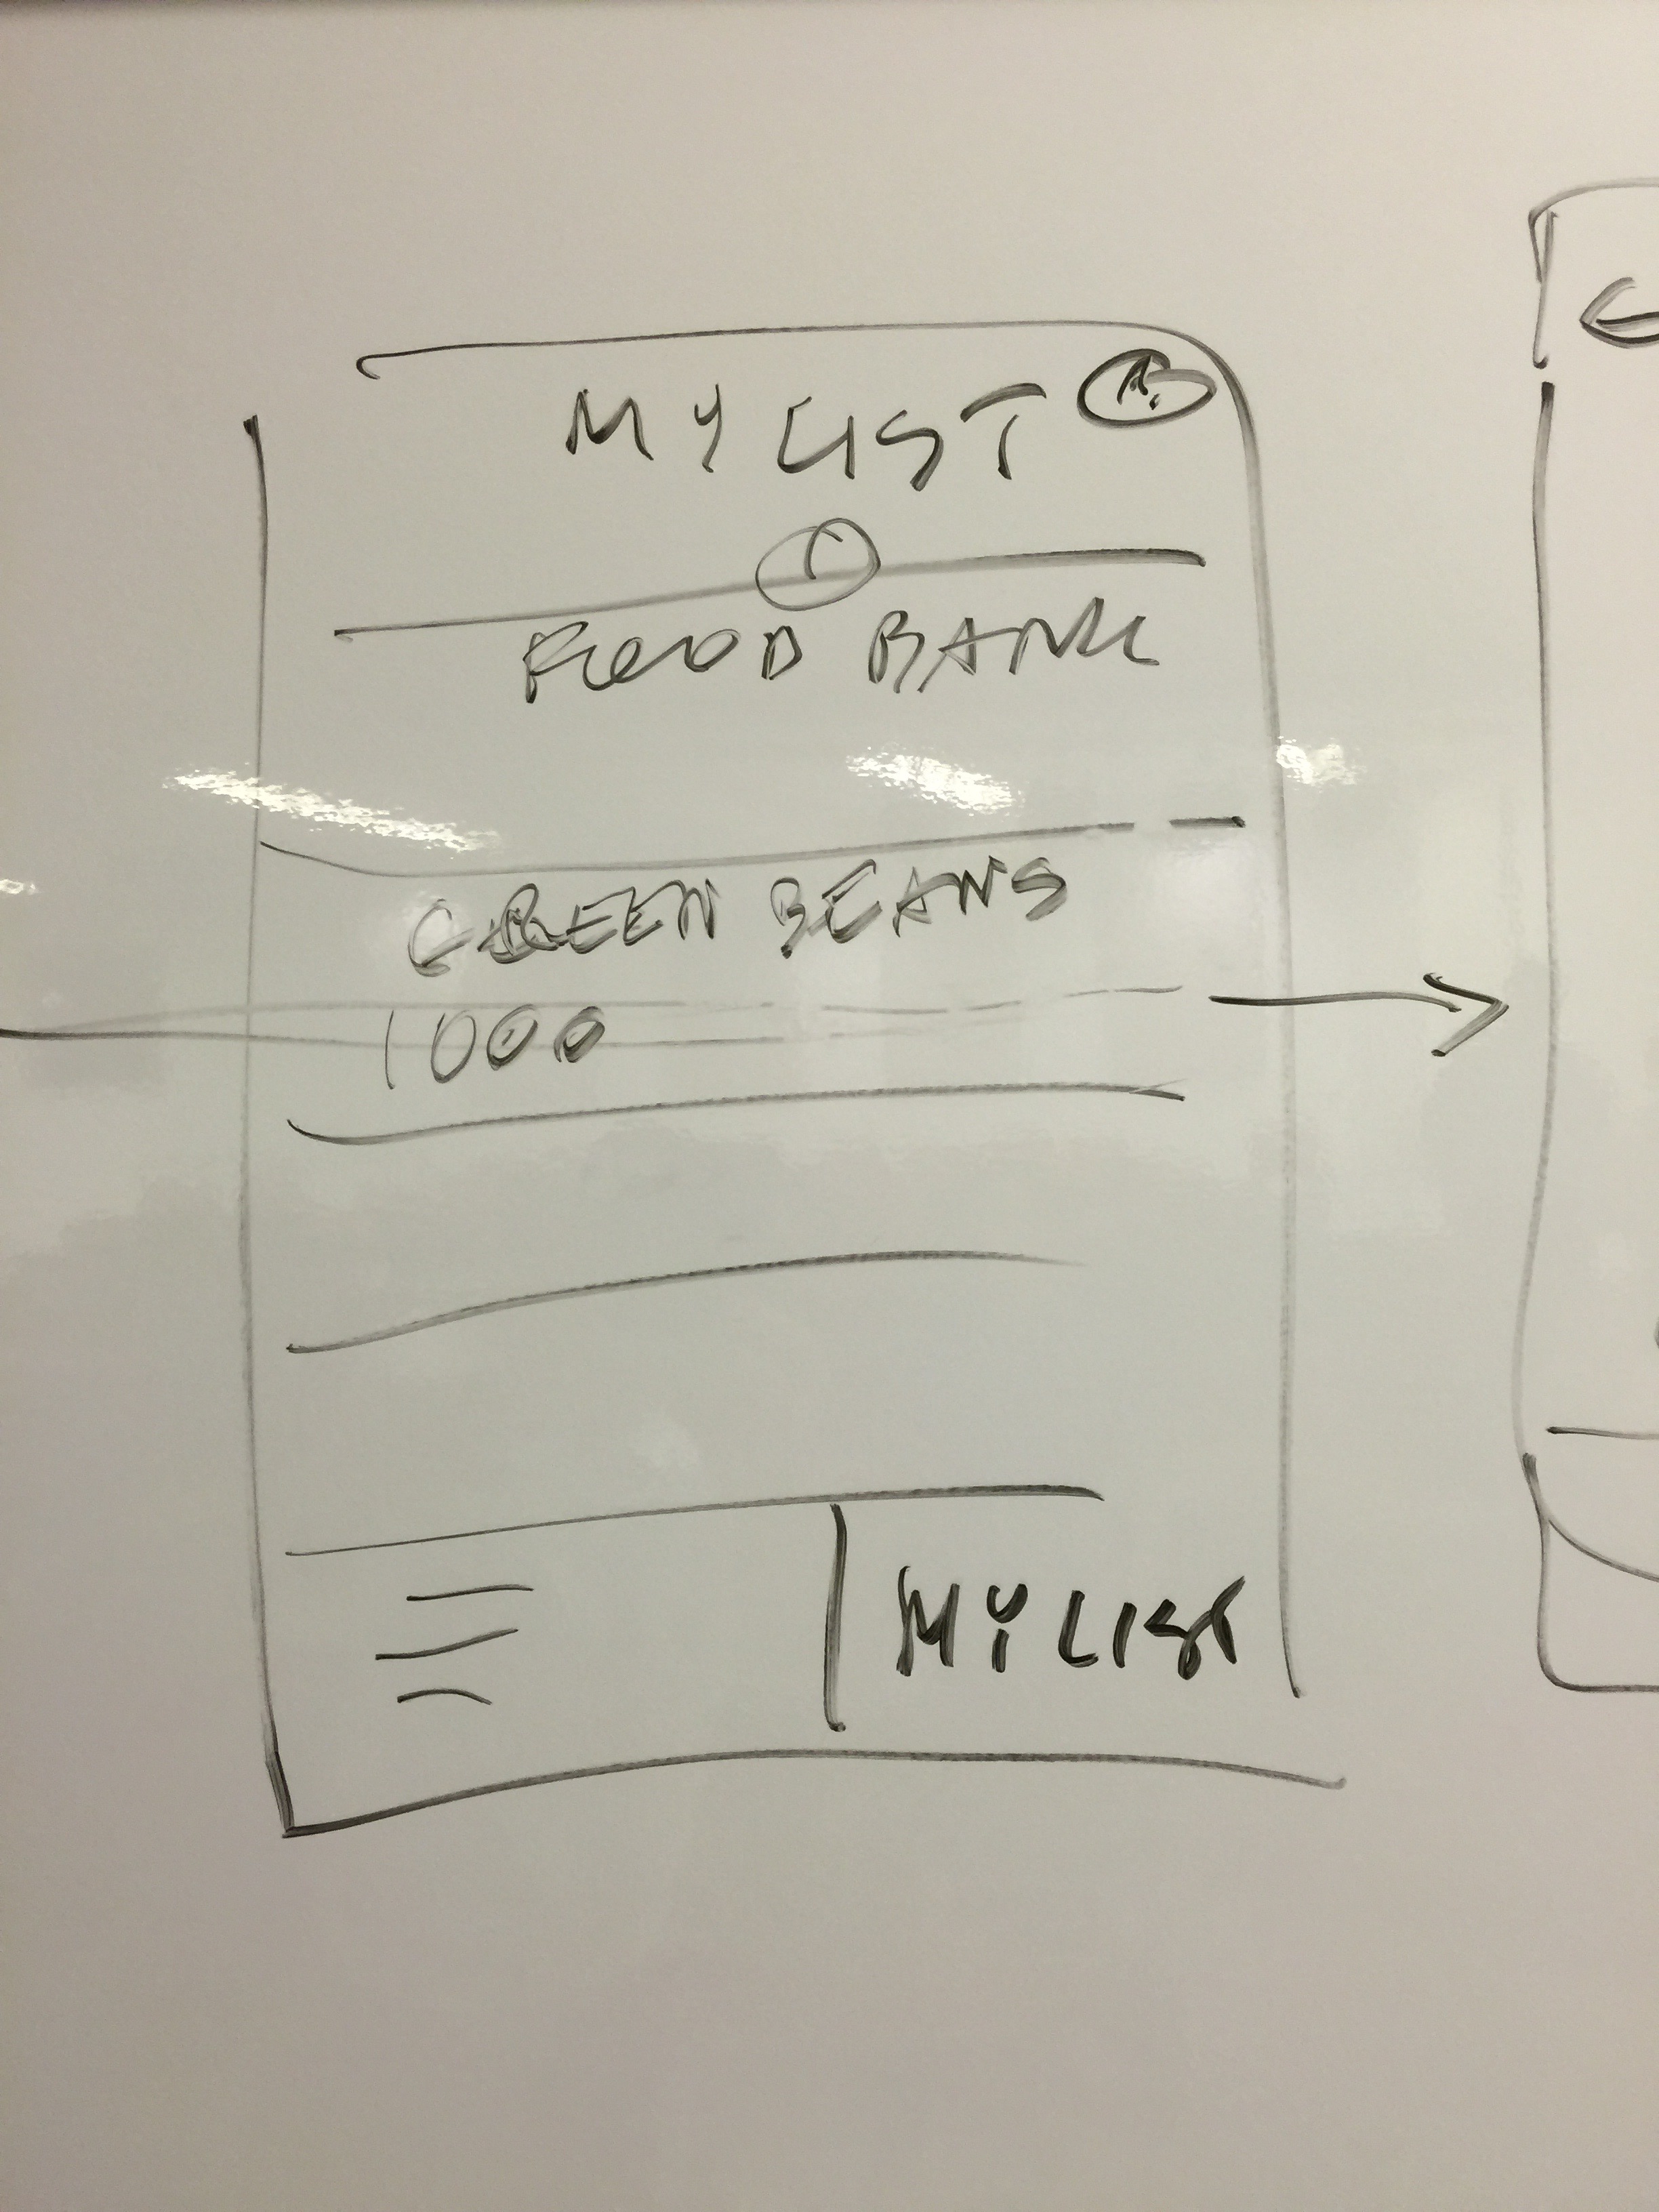 MY LIST
FOOD BANK
GREEN BEANS
1000
MY LIST